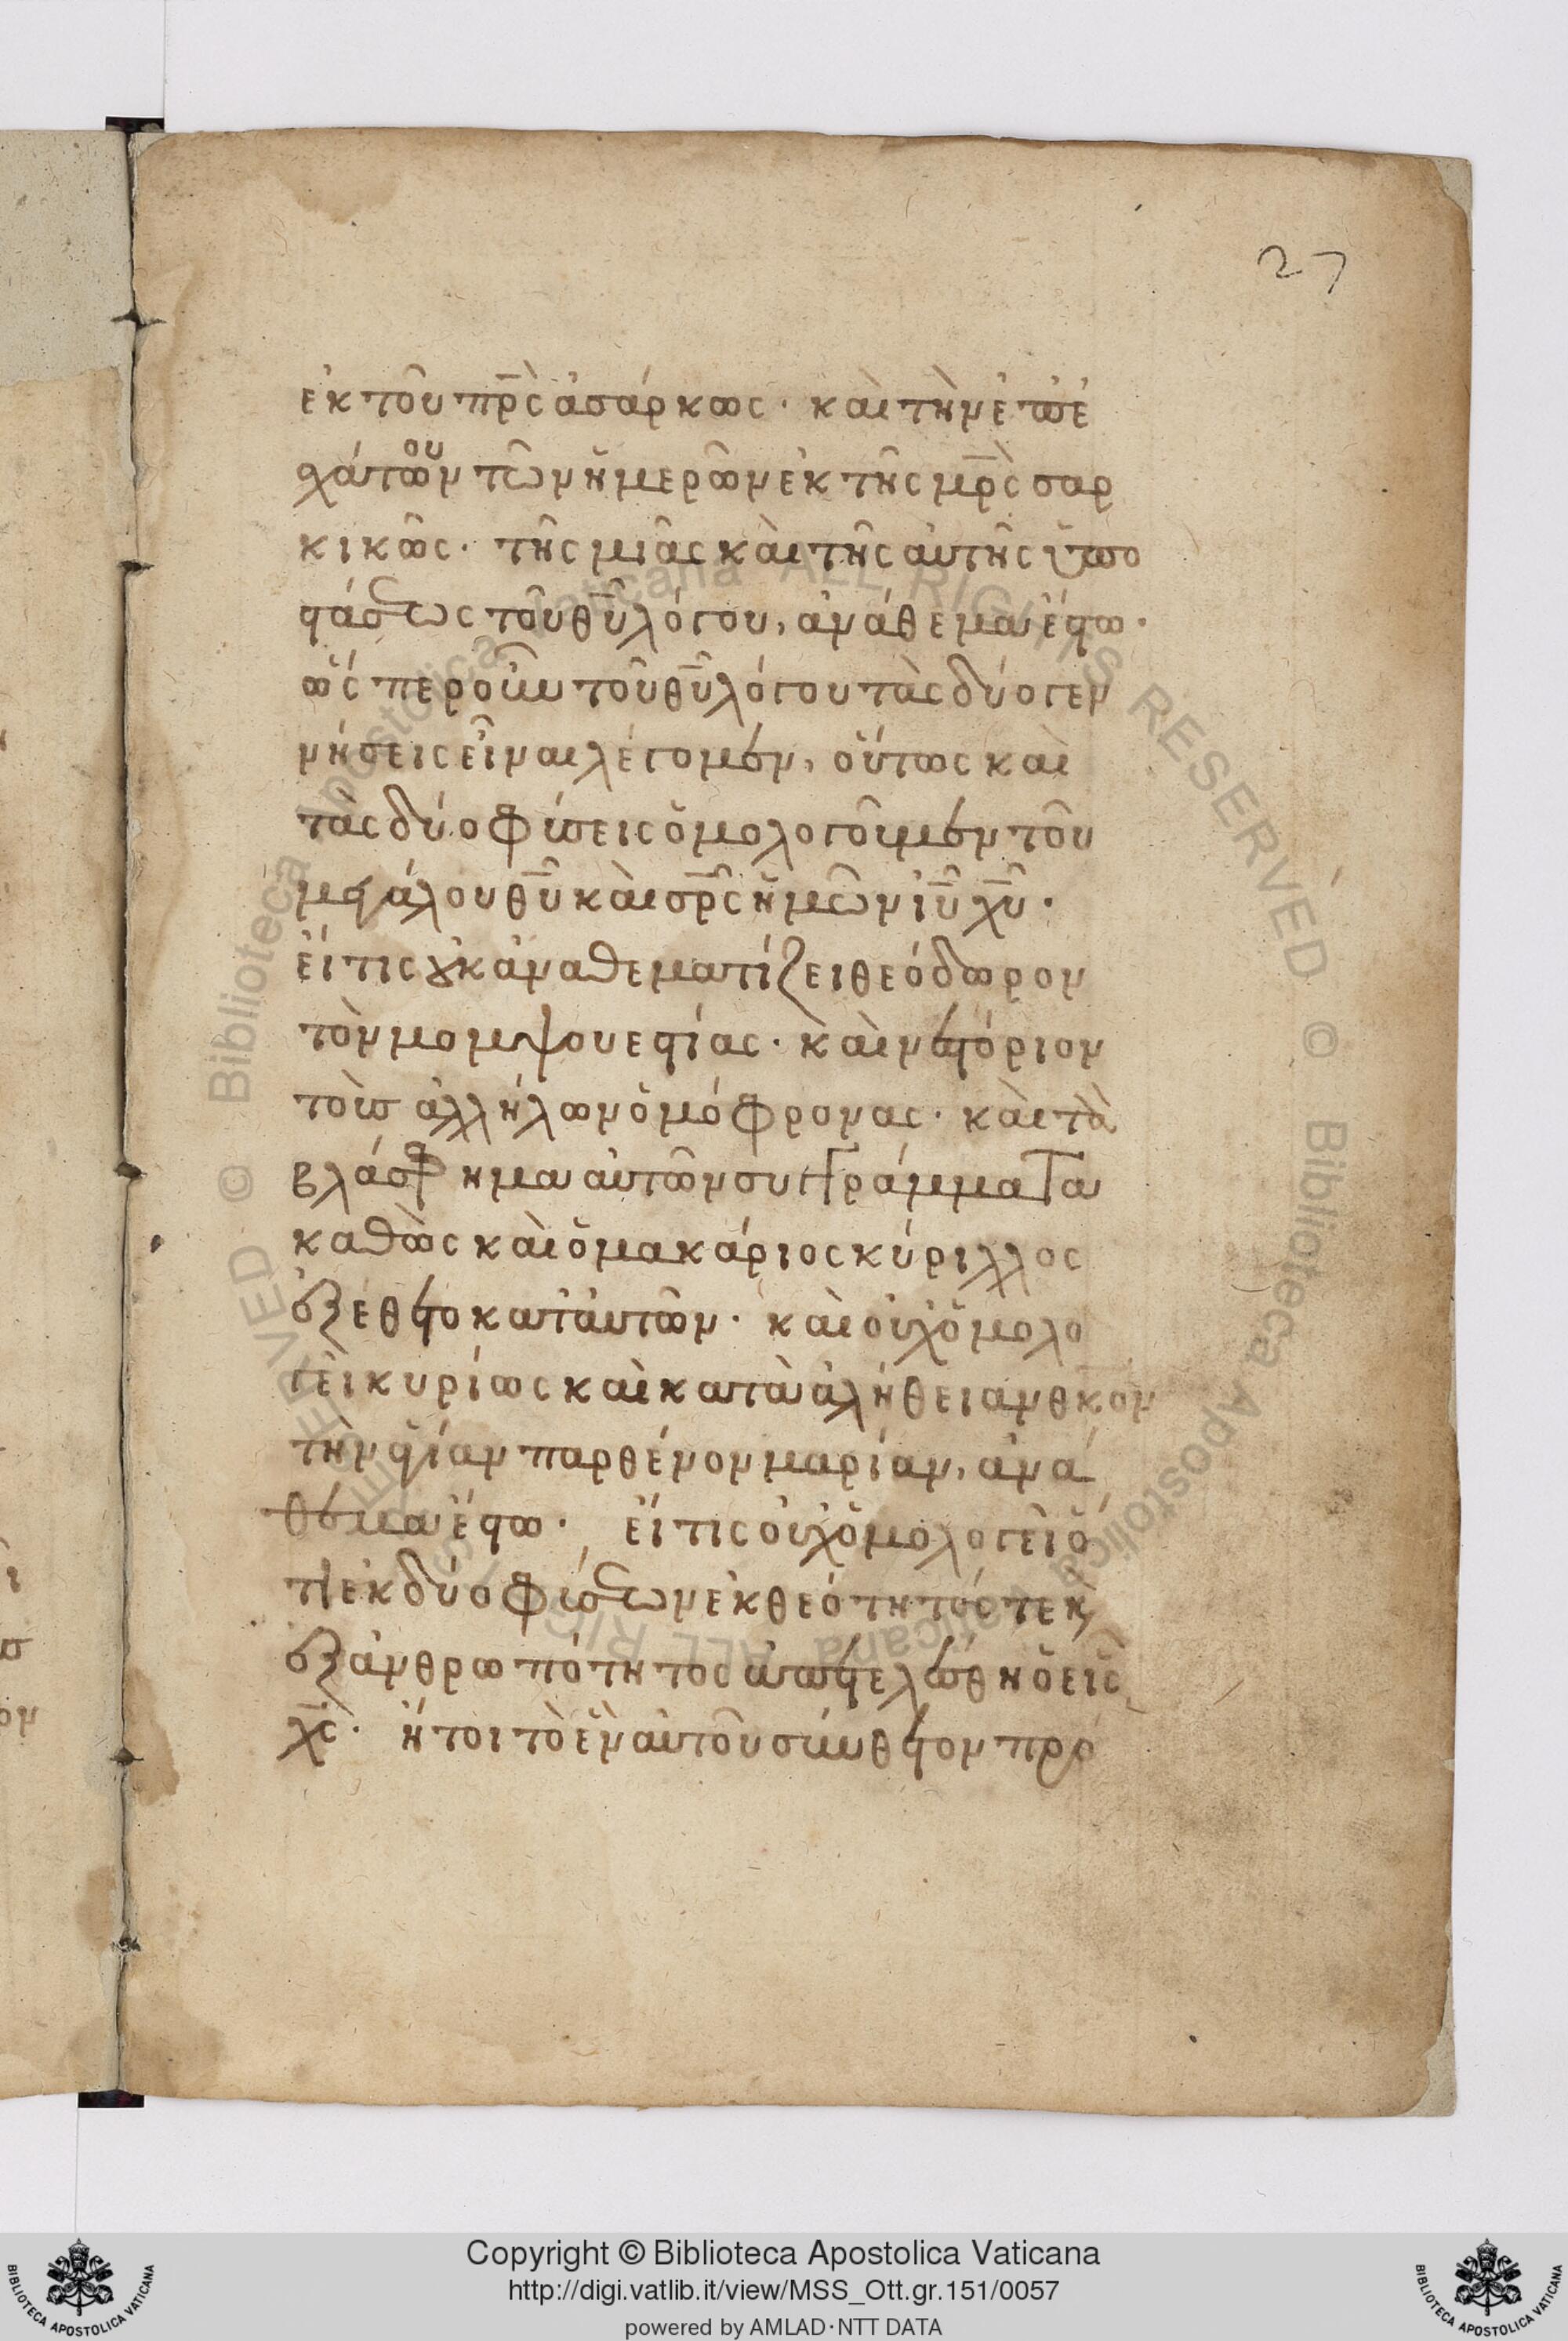 27
ἐκ τοῦ πρ̅ς ἀσάρκως · καὶ τὴν ἐπ ἐ
σχάτων τῶν ἡμερῶν ἐκ τῆς μρ̅ς σαρ
κικῶς · τῆς μιᾶς καὶ τῆς αὐτῆς ὑπο
στάσεως τοῦ θ̅υ λόγου, ἀνάθεμα ἔστω ·
ὥσπερ οὖν τοῦ θ̅υ λόγου τὰς δύο γεν
νήσεις εἶναι λέγομεν, οὕτως καὶ
τὰς δύο φύσεις ὁμολογοῦμεν τοῦ
μεγάλου θ̅υ καὶ σρ̅ς ἡμῶν ι̅υ χ̅υ ·
εἴ τις οὐκ ἀναθεματίζει θεόδωρον
τὸν μομψουεστίας · καὶ νεστόριον
τοὺς ἀλλήλων ὁμόφρονας · καὶ τὰ
βλάσφημα αὐτῶν συγγράμματα
καθὼς καὶ ὁ μακάριος κύριλλος
ἐξέθετο κατ αὐτῶν · καὶ οὐχ ὁμολο
γεῖ κυρίως καὶ κατὰ ἀλήθειαν θ̅κον
τὴν ἁγίαν παρθένον μαρίαν, ἀνά
θεμα ἔστω · εἴ τις οὐχ ὁμολογεῖ ὅ
τι ἐκ δύο φύσεων ἐκ θεότητός τε κ
ἐξ ἀνθρωπότητος ἀπετελέσθη ὁ εἷς
χ̅ς · ἤτοι τὸ ἓν αὐτοῦ σύνθετον πρό
Copyright © Biblioteca Apostolica Vaticana
http://digi.vatlib.it/view/MSS_Ott.gr.151/0057
powered by AMLAD·NTT DATA